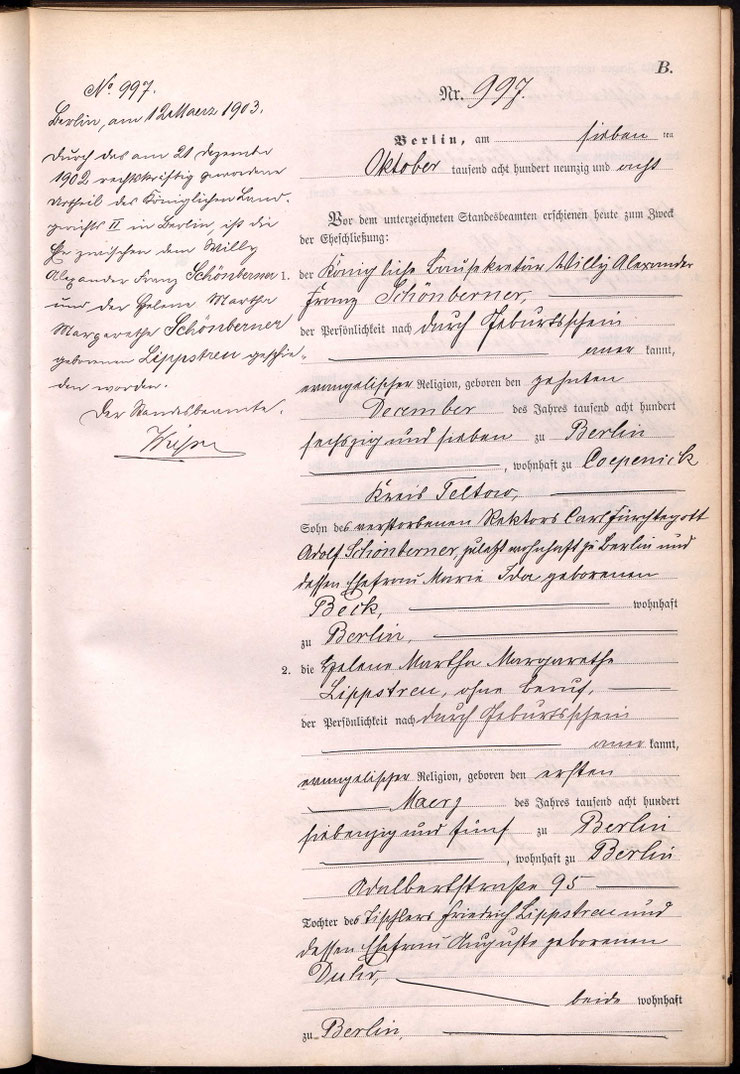 B.
No 997.
Berlin, am 12 Maerz 1903.
Durch das am 21 Dezember
1902 rechtskräftig gewordene
Urtheil des Königlichen Land-
gerichts II in Berlin, ist die
Ehe zwischen dem Willy
Alexander Franz Schönberner
und der Helene Martha
Margarethe Schönberner
geborenen Lippstreu geschie-
den worden.
Der Standesbeamte.
Nr. 997.
Berlin, am sieben ten
Oktober tausend acht hundert neunzig und acht
Vor dem unterzeichneten Standesbeamten erschienen heute zum Zweck
der Eheschließung:
1. der Königliche Bausekretär Willy Alexander
Franz Schönberner,
der Persönlichkeit nach durch Geburtsschein
aner kannt,
evangelischer Religion, geboren den zehnten
December des Jahres tausend acht hundert
sechszig und sieben zu Berlin
, wohnhaft zu Coepenick
Kreis Teltow,
Sohn des verstorbenen Rektors Carl Fürchtegott
Adolf Schönberner, zuletzt wohnhaft zu Berlin und
dessen Ehefrau Marie Ida geborenen
Beck, wohnhaft
zu Berlin.
2. die Helene Martha Margarethe
Lippstreu, ohne Beruf,
der Persönlichkeit nach durch Geburtsschein
aner kannt,
evangelischer Religion, geboren den ersten
Maerz des Jahres tausend acht hundert
siebenzig und fünf zu Berlin
, wohnhaft zu Berlin
Adalbertstraße 95
Tochter des Tischlers Friedrich Lippstreu und
dessen Ehefrau Auguste geborenen
Duhr, beide wohnhaft
zu Berlin,